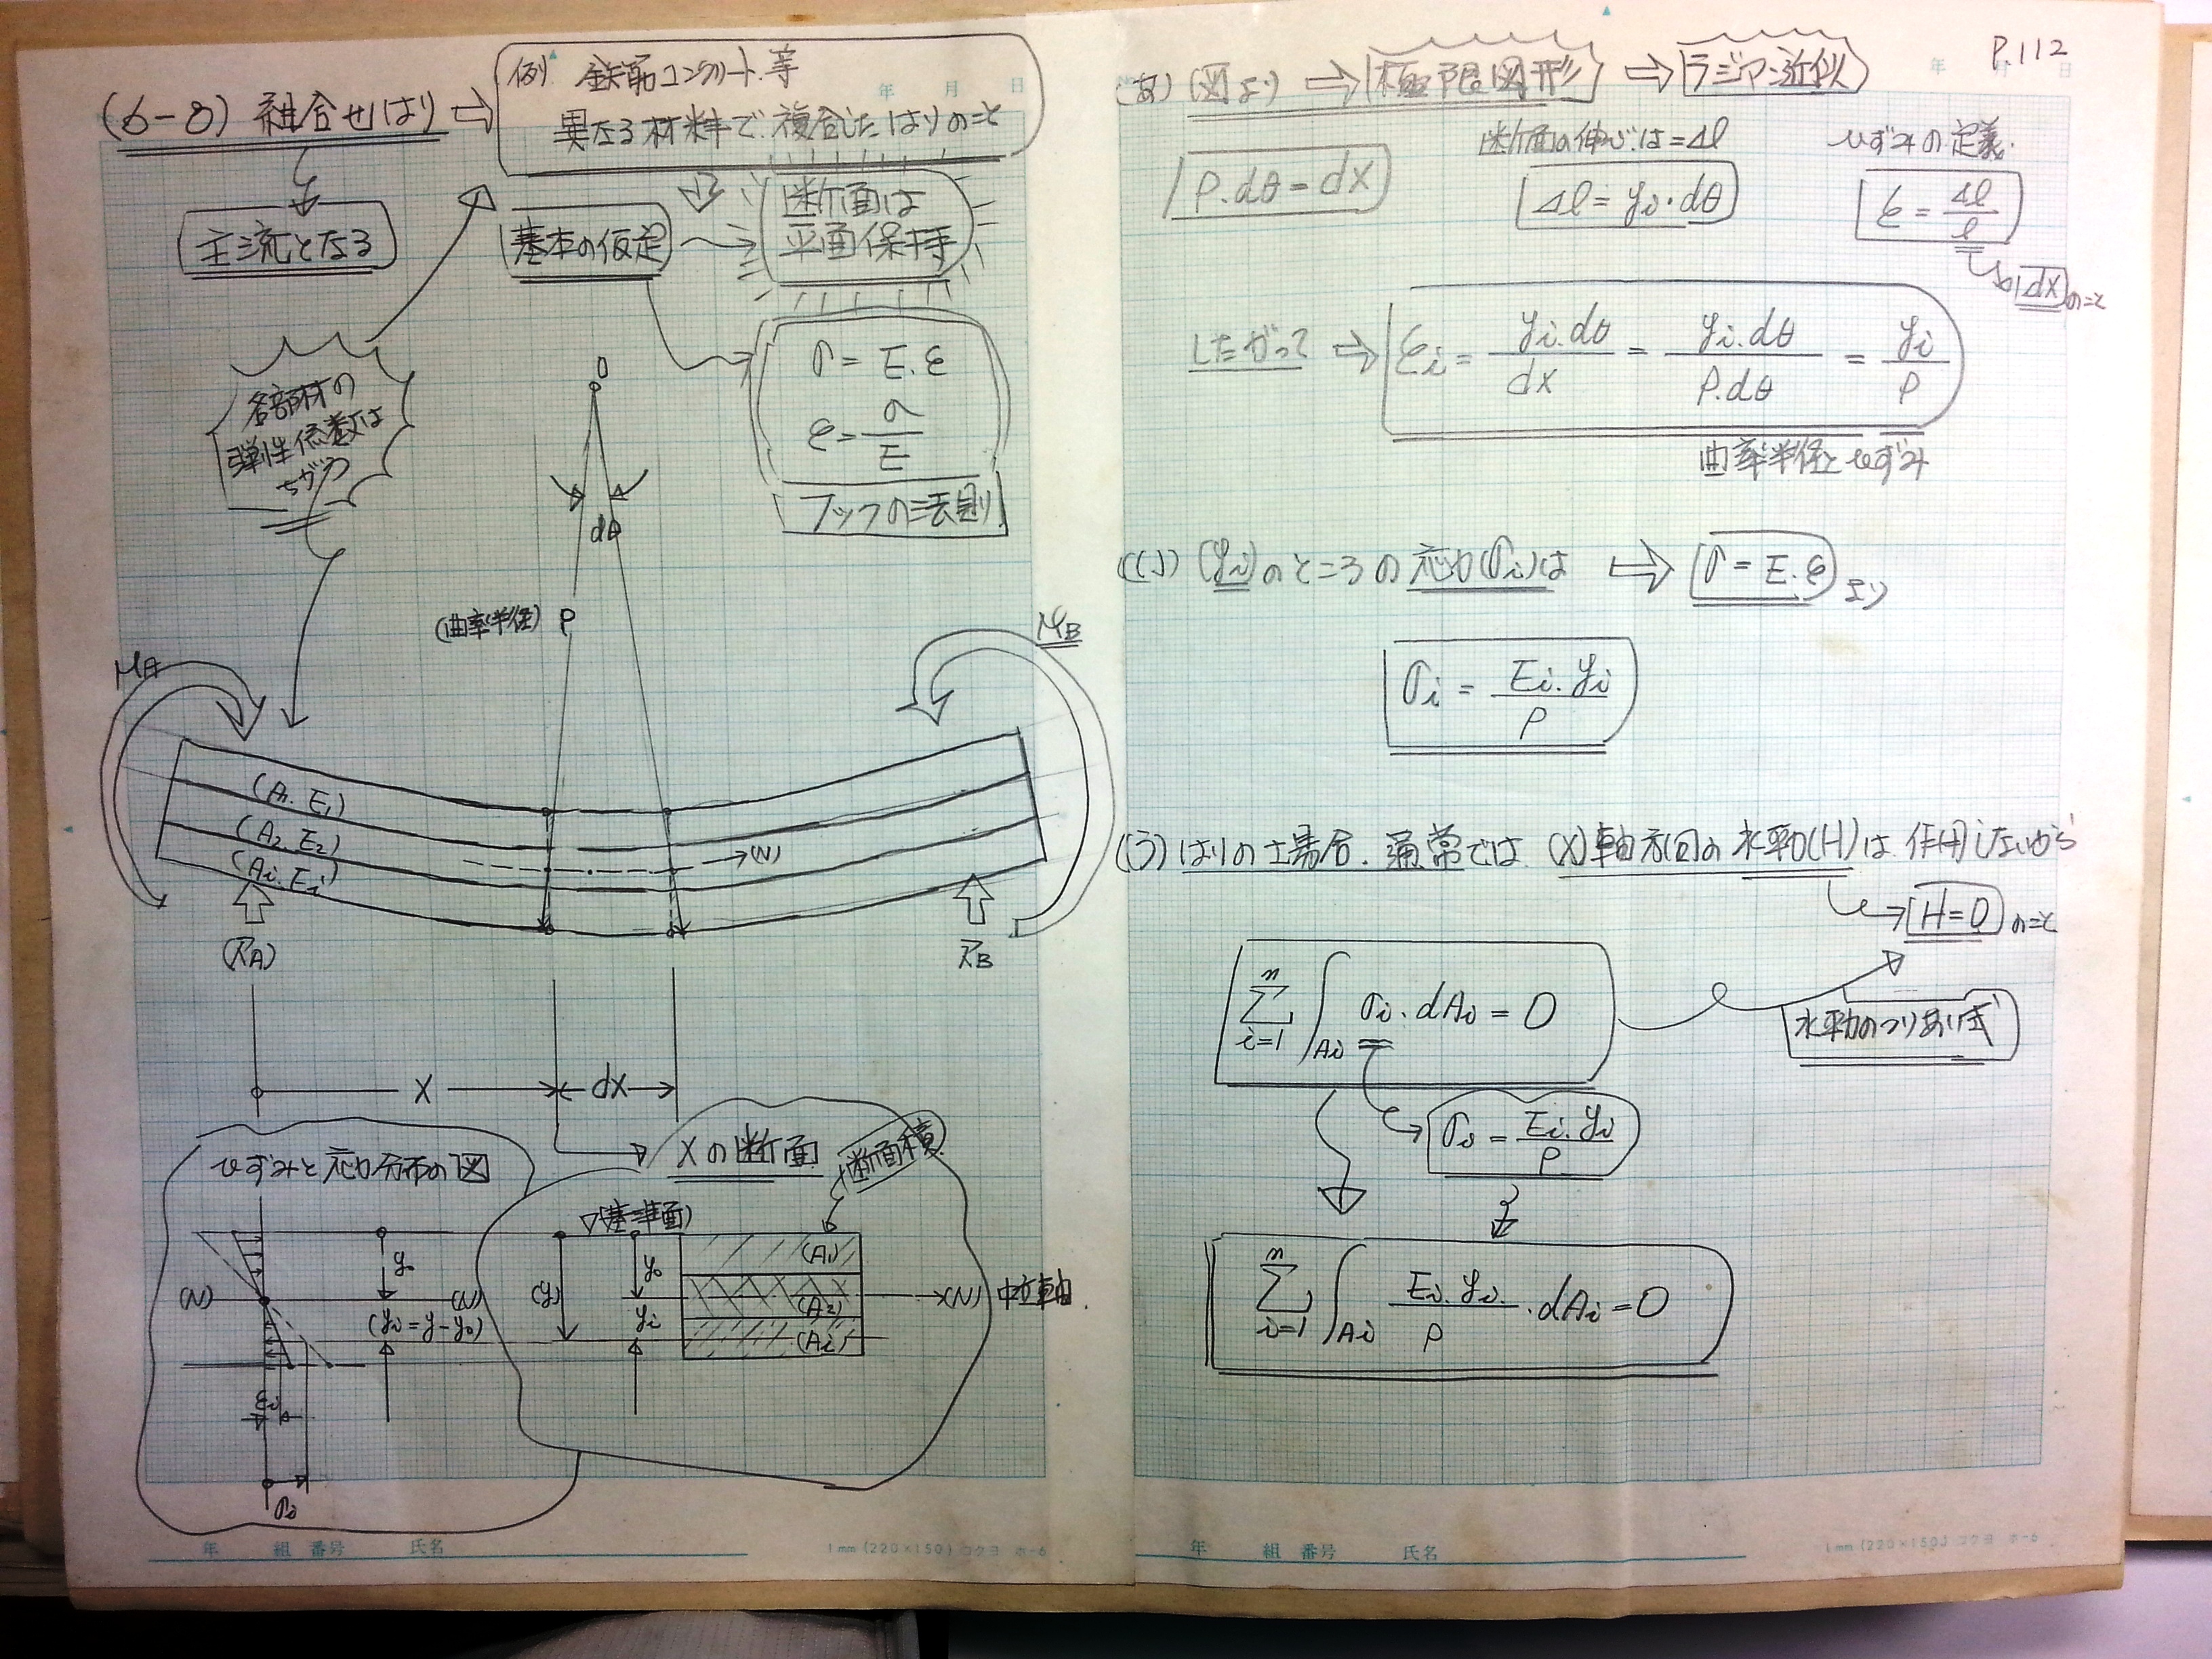 (6-8) 組合せはり
例 鉄筋コンクリート等
異なる材料で複合したはりのこと
主流となる
基本の仮定
断面は
平面保持
σ = E.ε
ε = σ/E
フックの法則
各部材の
弾性係数は
ちがう
O
dθ
(曲率半径) ρ
MA
MB
(A1. E1)
(A2. E2)
(Ai. Ei)
(N)
(RA)
RB
X
dx
ひずみと応力分布の図
Xの断面
断面積
▽(基準面)
y0
(N)
(N)
(yi = y - y0)
εi
σi
(y)
y0
yi
(A1)
(A2)
(Ai)
(N) 中立軸
年 月 日
年 組 番号 氏名
1mm (220×150) コクヨ ホ-6
P.112
年 月 日
(あ) (図より
極限図形
ラジアン近似
断面の伸びは=Δl
ひずみの定義.
ρ.dθ = dx
Δl = yi・dθ
ε = Δl/l
dx のこと
したがって
εi = yi.dθ/dx = yi.dθ/ρ.dθ = yi/ρ
曲率半径とひずみ
(い) (yi)のところの応力(σi)は
σ = E.ε より
σi = Ei.yi/ρ
(う) はりの場合. 通常では (X)軸方向の水平力(H)は作用しないから
H=0 のこと
n∑i=1 ∫Ai σi. dAi = 0
水平力のつりあい式
σi = Ei.yi/ρ
n∑i=1 ∫Ai Ei.yi/ρ .dAi = 0
年 組 番号 氏名
1mm (220×150) コクヨ ホ-6